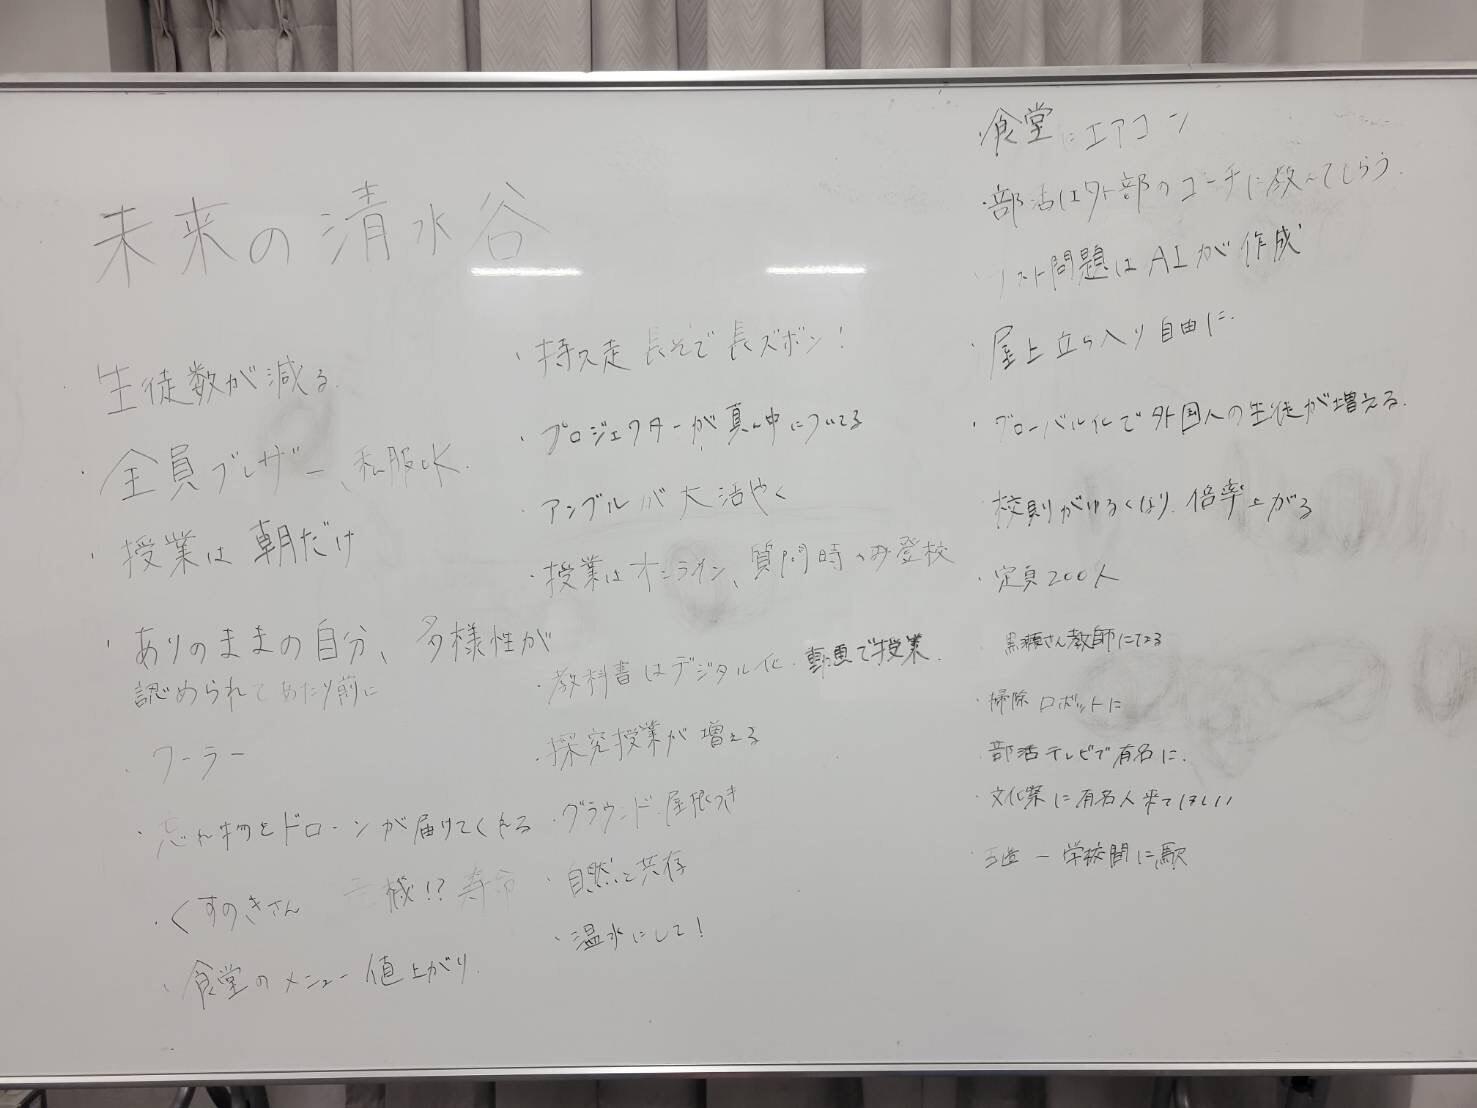 未来の清水谷
・生徒数が減る
・全員ブレザー、私服OK.
・授業は朝だけ
・ありのままの自分、多様性が
認められてあたり前に
・クーラー
・忘れ物をドローンが届けてくれる
・くすのきさん 危機!? 寿命
・食堂のメニュー値上がり.
・持久走 長そで長ズボン!
・プロジェクターが真ん中についてる
・アンブルが大活やく
・授業はオンライン、質問時のみ登校
・教科書はデジタル化・動画で授業.
・探究授業が増える
・グラウンド.屋根つき
・自然と共存
・温水にして!
・食堂にエアコン
・部活は外部のコーチに教えてもらう.
テスト問題はAIが作成
・屋上立ち入り自由に.
・グローバル化で外国人の生徒が増える.
校則がゆるくなり.倍率上がる
・定員200人
黒瀬さん教師になる
・掃除ロボットに
・部活テレビで有名に.
・文化祭に有名人来てほしい
・玉造 ー 学校間に駅